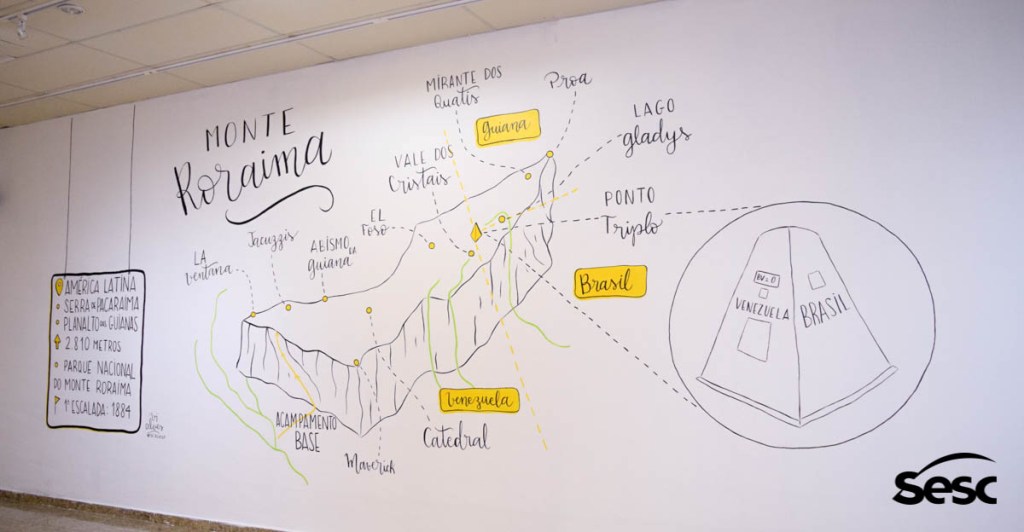 MONTE
Roraima
MIRANTE DOS
Quatis
Proa
guiana
LAGO
gladys
VALE DOS
Cristais
EL
Foso
PONTO
Triplo
Jacuzzis
ABISMO DA
guiana
LA
Ventana
Brasil
AMÉRICA LATINA
SERRA DE PACARAIMA
PLANALTO DAS GUIANAS
2.810 METROS
PARQUE NACIONAL
DO MONTE RORAIMA
1ª ESCALADA: 1884
BV-0
VENEZUELA
BRASIL
Venezuela
ACAMPAMENTO
BASE
Catedral
Maverick
Sesc